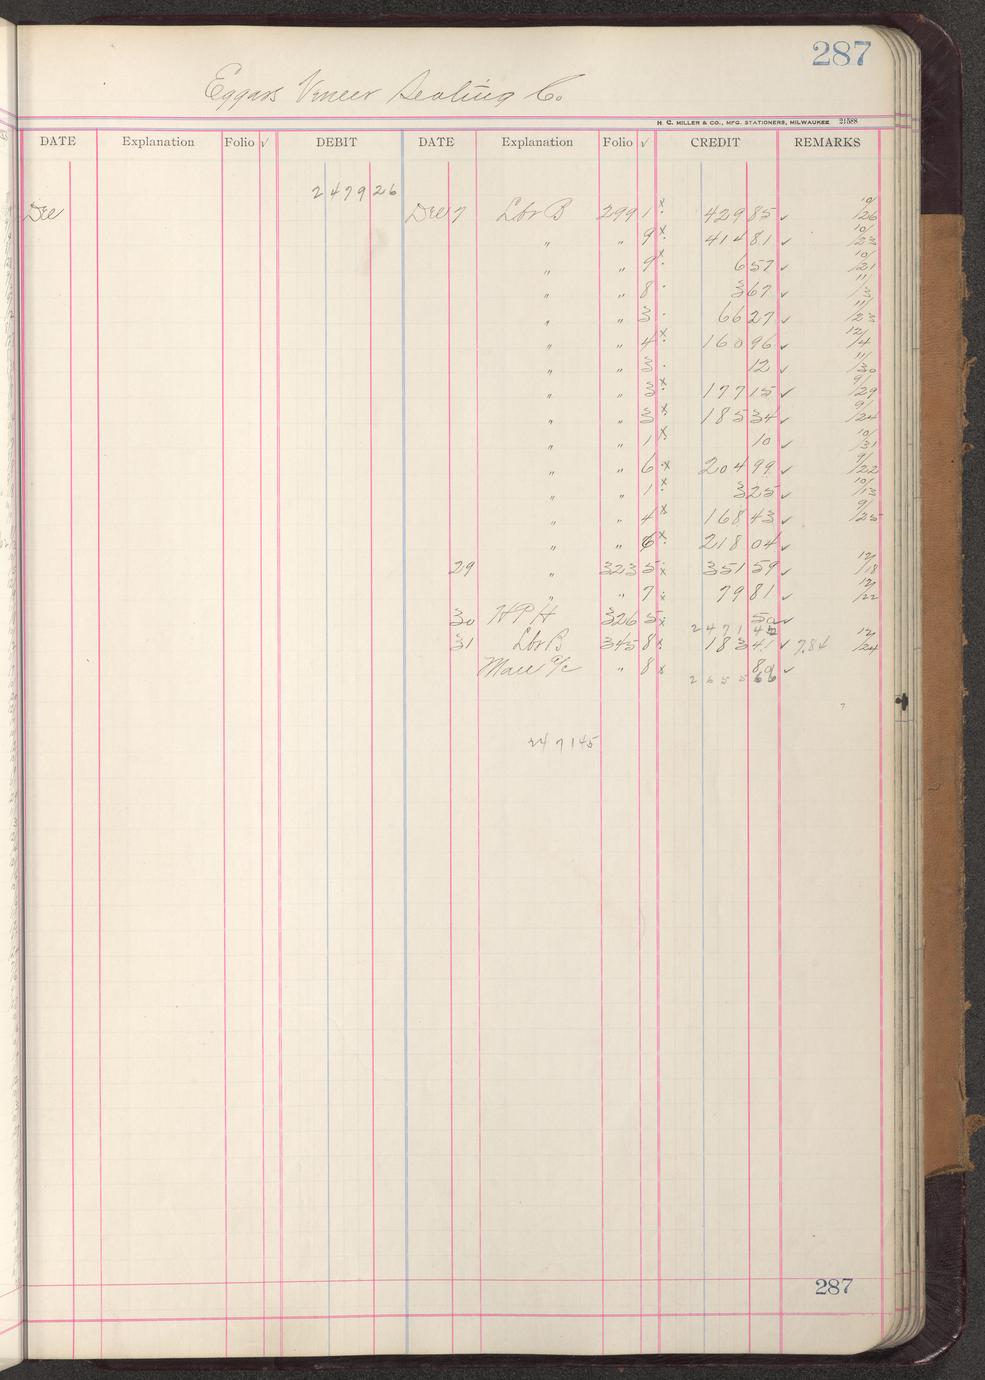 287
Eggars Veneer Seating Co.
H. C. MILLER & CO., MFG. STATIONERS, MILWAUKEE 21588
DATE Explanation Folio √ DEBIT DATE Explanation Folio √ CREDIT REMARKS
2479 26
Dec Dec 7 Lbr B 299 1 x 429 85 ✓ 10/26
" " 9 x 414 81 ✓ 10/23
" " 9 x 6 57 ✓ 10/21
" " 8 3 67 ✓ 11/3
" " 3 66 27 ✓ 11/23
" " 4 x 160 96 ✓ 12/4
" " 3 12 ✓ 11/30
" " 3 x 177 15 ✓ 9/29
" " 3 x 185 34 ✓ 9/24
" " 1 x 10 ✓ 10/31
" " 6 x 204 99 ✓ 9/22
" " 1 x 3 25 ✓ 10/13
" " 4 x 168 43 ✓ 9/25
" " 6 x 218 04 ✓
29 " 323 5 x 351 59 ✓ 12/18
" " 7 x 79 81 ✓ 12/22
30 H P H 326 5 x 50 ✓
2471 45
31 Lbr B 345 8 x 183 41 ✓ 7.84 12/24
" 8 x 80 ✓
2655 66
2471 45
287